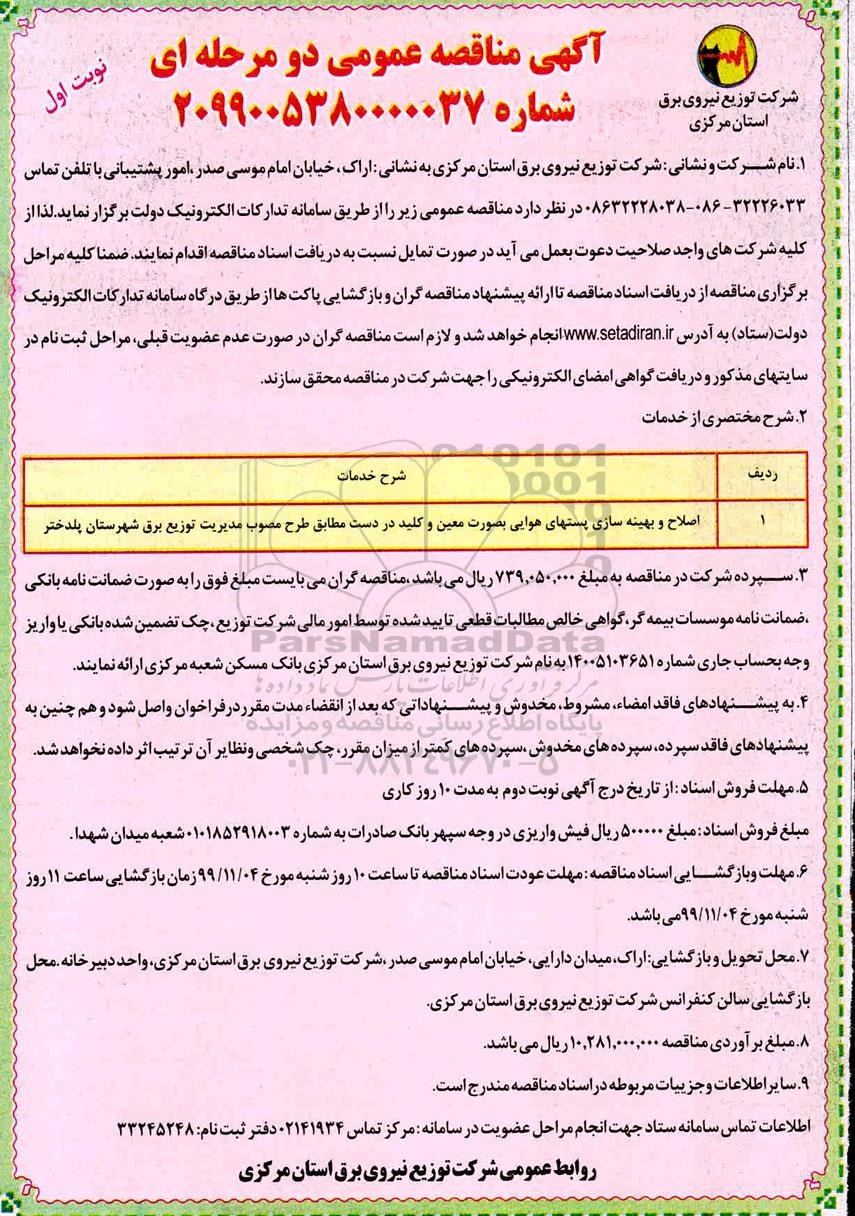 آگهی مناقصه عمومی دو مرحله ای
شماره ۲۰۹۹۰۰۵۳۸۰۰۰۰۰۳۷
نوبت اول
شرکت توزیع نیروی برق
استان مرکزی
۱. نام شرکت و نشانی: شرکت توزیع نیروی برق استان مرکزی به نشانی: اراک، خیابان امام موسی صدر، امور پشتیبانی با تلفن تماس
۳۲۲۲۶۰۳۳-۰۸۶-۰۸۶۳۲۲۲۸۰۳۸ در نظر دارد مناقصه عمومی زیر را از طریق سامانه تدارکات الکترونیک دولت برگزار نماید. لذا از
کلیه شرکت های واجد صلاحیت دعوت بعمل می آید در صورت تمایل نسبت به دریافت اسناد مناقصه اقدام نمایند. ضمنا کلیه مراحل
برگزاری مناقصه از دریافت اسناد مناقصه تا ارائه پیشنهاد مناقصه گران و بازگشایی پاکت ها از طریق درگاه سامانه تدارکات الکترونیک
دولت(ستاد) به آدرس www.setadiran.ir انجام خواهد شد و لازم است مناقصه گران در صورت عدم عضویت قبلی، مراحل ثبت نام در
سایتهای مذکور و دریافت گواهی امضای الکترونیکی را جهت شرکت در مناقصه محقق سازند.
۲. شرح مختصری از خدمات
ردیف شرح خدمات
۱ اصلاح و بهینه سازی پستهای هوایی بصورت معین و کلید در دست مطابق طرح مصوب مدیریت توزیع برق شهرستان پلدختر
۳. سپرده شرکت در مناقصه به مبلغ ۷۳۹,۰۵۰,۰۰۰ ریال می باشد، مناقصه گران می بایست مبلغ فوق را به صورت ضمانت نامه بانکی
،ضمانت نامه موسسات بیمه گر، گواهی خالص مطالبات قطعی تایید شده توسط امور مالی شرکت توزیع، چک تضمین شده بانکی یا واریز
وجه بحساب جاری شماره ۱۴۰۰۵۱۰۳۶۵۱ به نام شرکت توزیع نیروی برق استان مرکزی بانک مسکن شعبه مرکزی ارائه نمایند.
۴. به پیشنهادهای فاقد امضاء، مشروط، مخدوش و پیشنهاداتی که بعد از انقضاء مدت مقرر در فراخوان واصل شود و هم چنین به
پیشنهادهای فاقد سپرده، سپرده های مخدوش، سپرده های کمتر از میزان مقرر، چک شخصی و نظایر آن ترتیب اثر داده نخواهد شد.
۵. مهلت فروش اسناد: از تاریخ درج آگهی نوبت دوم به مدت ۱۰ روز کاری
مبلغ فروش اسناد: مبلغ ۵۰۰۰۰۰ ریال فیش واریزی در وجه سپهر بانک صادرات به شماره ۰۱۰۱۸۵۲۹۱۸۰۰۳ شعبه میدان شهدا.
۶. مهلت و بازگشایی اسناد مناقصه: مهلت عودت اسناد مناقصه تا ساعت ۱۰ روز شنبه مورخ ۹۹/۱۱/۰۴ زمان بازگشایی ساعت ۱۱ روز
شنبه مورخ ۹۹/۱۱/۰۴ می باشد.
۷. محل تحویل و بازگشایی: اراک، میدان دارایی، خیابان امام موسی صدر، شرکت توزیع نیروی برق استان مرکزی، واحد دبیرخانه. محل
بازگشایی سالن کنفرانس شرکت توزیع نیروی برق استان مرکزی.
۸. مبلغ برآوردی مناقصه ۱۰,۲۸۱,۰۰۰,۰۰۰ ریال می باشد.
۹. سایر اطلاعات و جزییات مربوطه در اسناد مناقصه مندرج است.
اطلاعات تماس سامانه ستاد جهت انجام مراحل عضویت در سامانه: مرکز تماس ۰۲۱۴۱۹۳۴ دفتر ثبت نام: ۳۳۲۴۵۲۴۸
روابط عمومی شرکت توزیع نیروی برق استان مرکزی
ParsNamadData
مرکز فرآوری اطلاعات پارس نماد داده ها
پایگاه اطلاع رسانی مناقصه و مزایده
۰۲۱-۸۸۳۴۹۶۷۰-۵